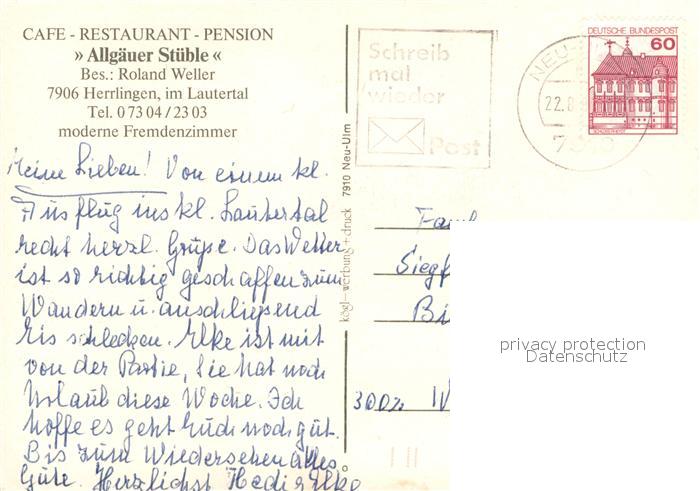 CAFE - RESTAURANT - PENSION
» Allgäuer Stüble «
Bes.: Roland Weller
7906 Herrlingen, im Lautertal
Tel. 0 73 04 / 23 03
moderne Fremdenzimmer
Meine Lieben! Von einem kl.
Ausflug ins kl. Lautertal
recht herzl. Grüße. Das Wetter
ist so richtig geschaffen zum
Wandern u. anschließend
Eis schlecken. Elke ist mit
von der Partie, Sie hat noch
Urlaub diese Woche. Ich
hoffe es geht Euch noch gut.
Bis zum Wiedersehen alles
Gute. Herzlichst Hedi Elke
kögl-werbung+druck 7910 Neu-Ulm
Schreib
mal
wieder
Post
NEU-
22.8
DEUTSCHE BUNDESPOST
60
Fam
Siegf
Bi
W
privacy protection
Datenschutz